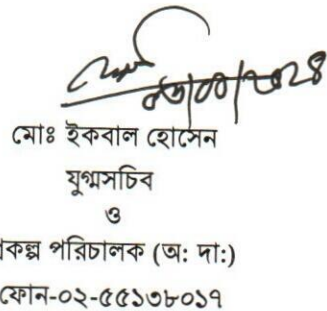 মোঃ ইকবাল হোসেন
যুগ্মসচিব
ও
প্রকল্প পরিচালক (অ: দা:)
ফোন-০২-৫৫১৩৮০১৭